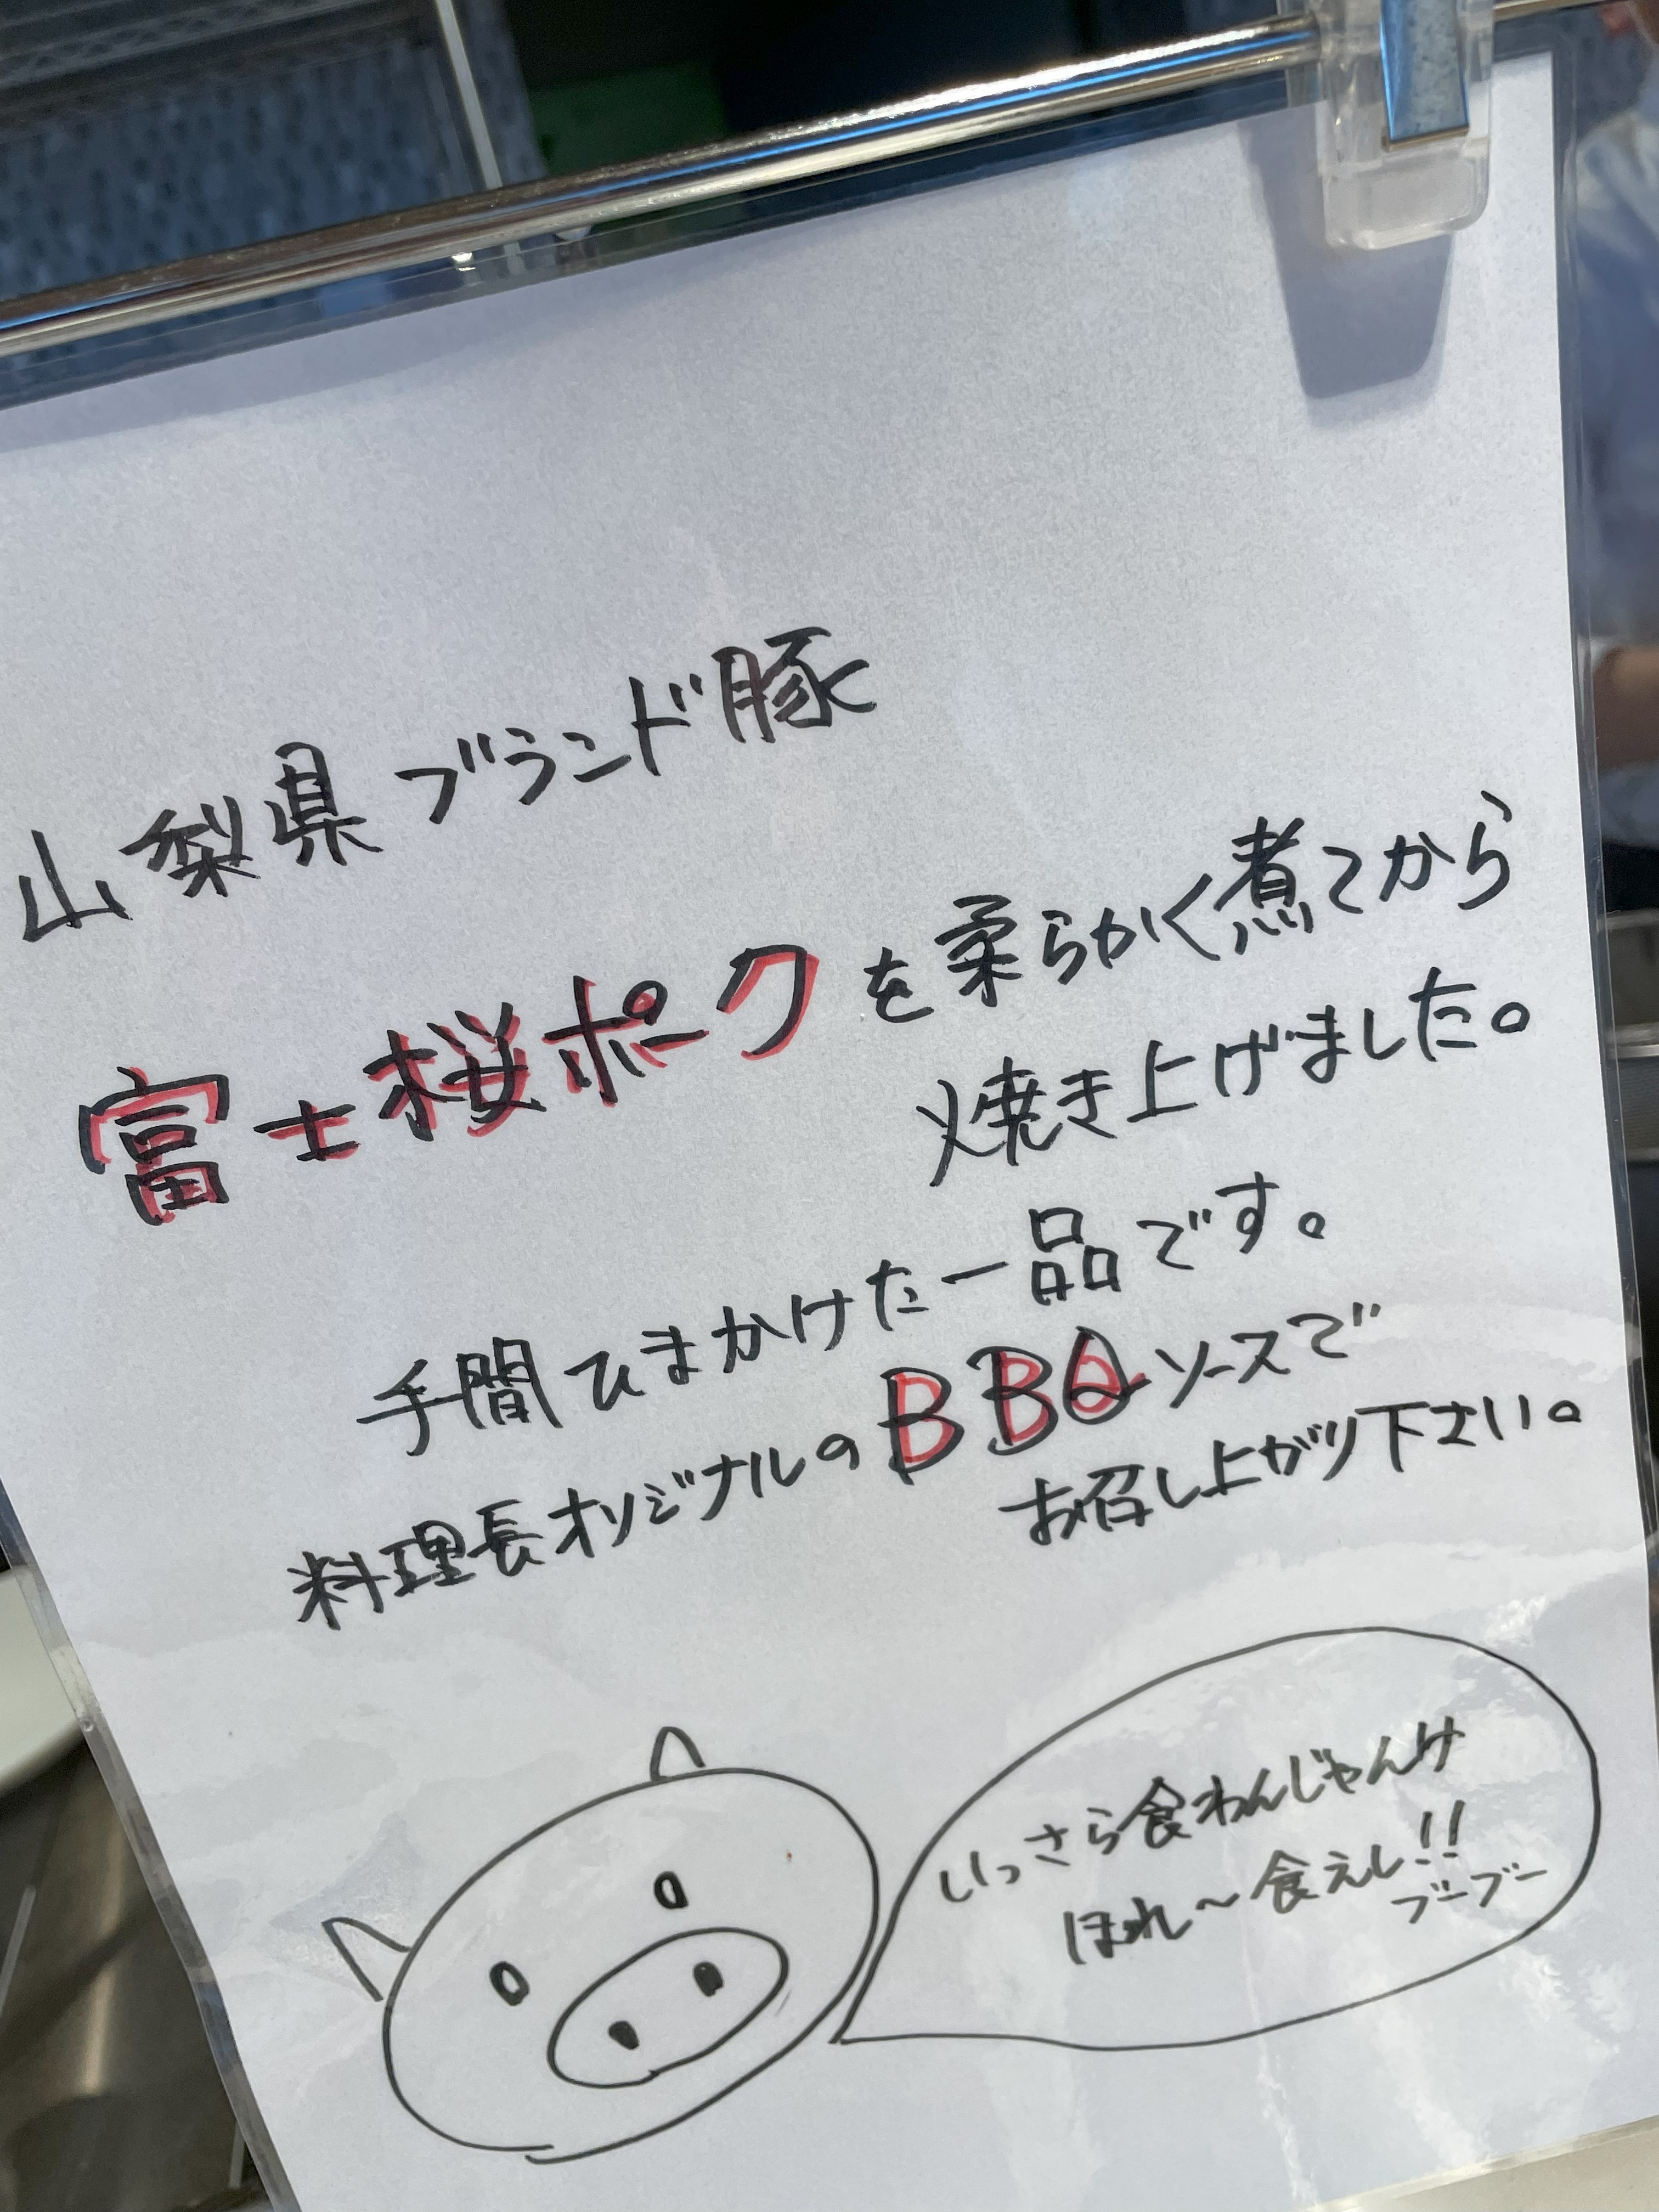 山梨県ブランド豚
富士桜ポークを柔らかく煮てから
焼き上げました。
手間ひまかけた一品です。
料理長オリジナルのBBQソースで
お召し上がり下さい。
いっさら食わんじゃんけ
ほれ～食えし!!
ブーブー